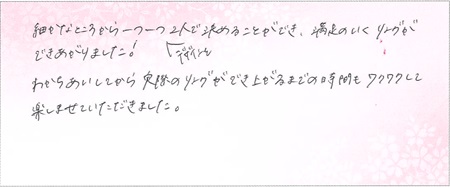 細かなところから一つ一つ2人で決めることができ、満足のいくリングが
できあがりました!
デザインを
わからあいしてから実際のリングができ上がるまでの時間もワクワクして
楽しませていただきました。